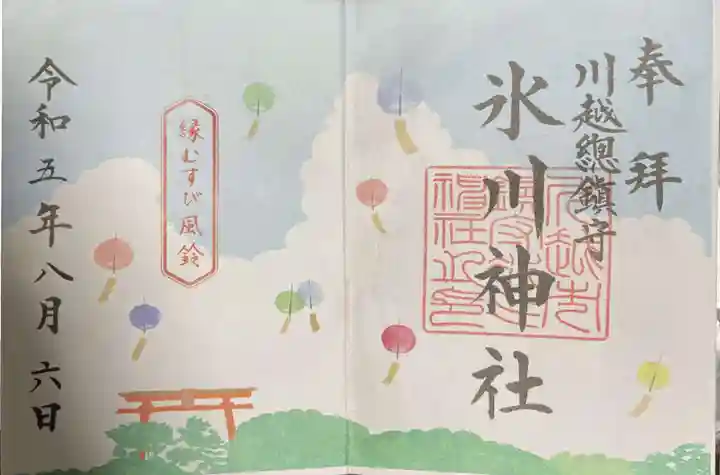 奉拝
川越總鎮守
氷川神社
縁むすび風鈴
令和五年八月六日